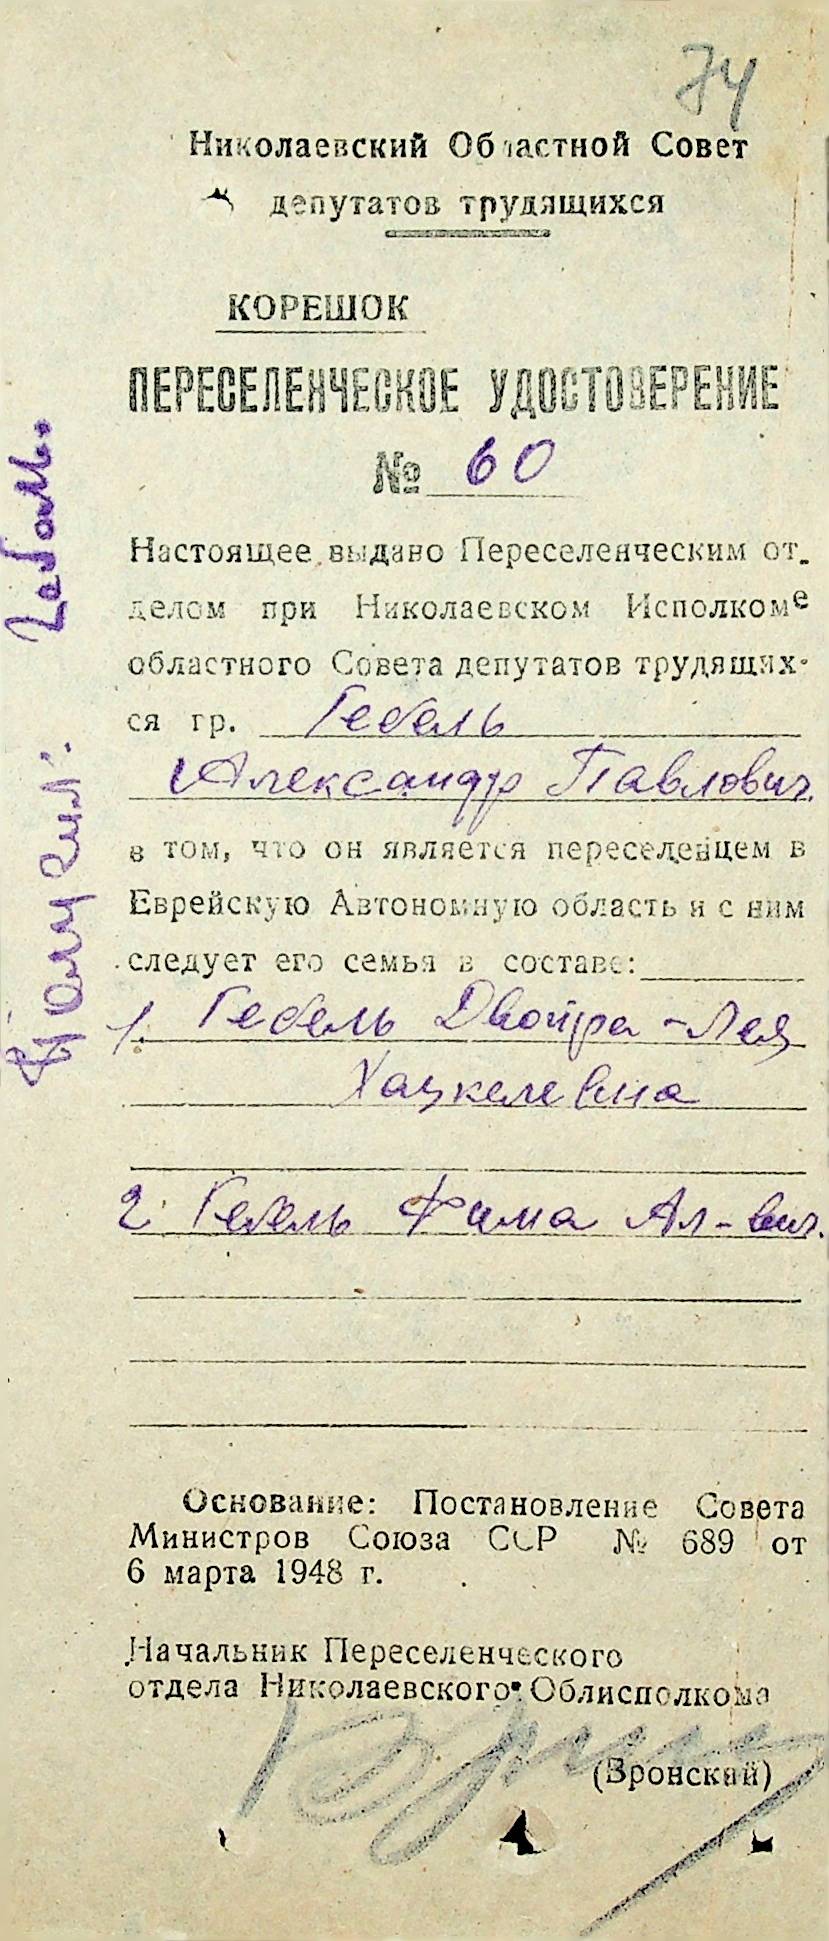 74
Николаевский Областной Совет
депутатов трудящихся
КОРЕШОК
ПЕРЕСЕЛЕНЧЕСКОЕ УДОСТОВЕРЕНИЕ
№ 60
Настоящее выдано Переселенческим от-
делом при Николаевском Исполкоме
областного Совета депутатов трудящих-
ся гр. Гебель
Александр Павлович
в том, что он является переселенцем в
Еврейскую Автономную область и с ним
следует его семья в составе:
1. Гебель Двойра-Лея
Хацкелевна
2. Гебель Фима Ал-вич.
Основание: Постановление Совета
Министров Союза ССР № 689 от
6 марта 1948 г.
Начальник Переселенческого
отдела Николаевского Облисполкома
(Вронский)
получил: Гебель